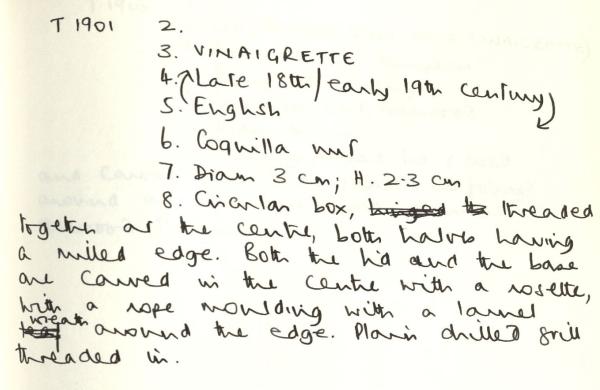 T 1901 2.
3. VINAIGRETTE
4. Late 18th/early 19th century
5. English
6. Coquilla nut
7. Diam 3 cm; H. 2.3 cm
8. Circular box, hinged to threaded
together at the centre, both halves having
a milled edge. Both the lid and the base
are carved in the centre with a rosette,
with a rope moulding with a laurel
wreath around the edge. Plain drilled grill
threaded in.